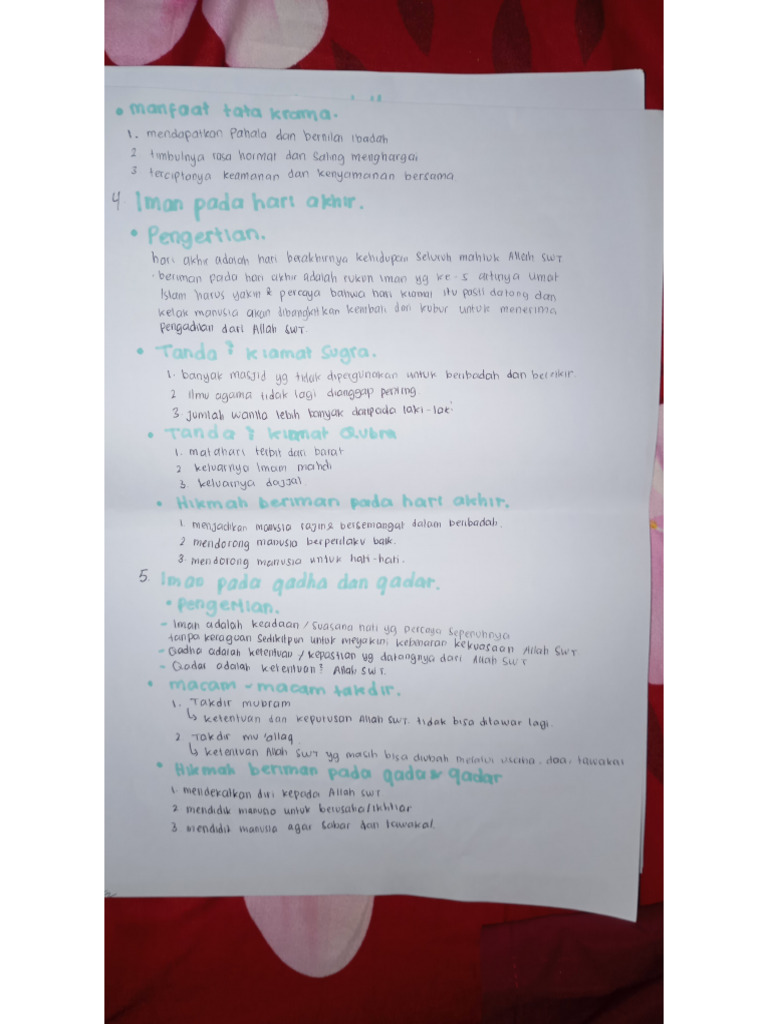 • manfaat tata krama.
1. mendapatkan Pahala dan bernilai Ibadah
2 timbulnya rasa hormat dan Saling menghargai
3 terciptanya keamanan dan kenyamanan bersama
4 Iman pada hari akhir.
• Pengertian.
hari akhir adalah hari berakhirnya kehidupan Seluruh mahluk Allah SWT
- beriman pada hari akhir adalah rukun Iman yg ke-5 artinya umat
Islam harus yakin & percaya bahwa hari kiamat itu pasti datang dan
kelak manusia akan dibangkitkan kembali dari kubur untuk menerima
Pengadilan dari Allah SWT.
• Tanda ² kiamat Sugra.
1. banyak masjid yg tidak dipergunakan untuk beribadah dan berzikir.
2 Ilmu agama tidak lagi dianggap penting
3 Jumlah wanita lebih banyak daripada laki-laki
• Tanda ² kiamat Qubra
1. matahari terbit dari barat
2 keluarnya Imam mahdi
3. keluarnya dajjal.
• Hikmah beriman pada hari akhir.
1. menjadikan manusia rajin & bersemangat dalam beribadah.
2 mendorong manusia berperilaku baik.
3. mendorong manusia untuk hati-hati.
5. Iman pada qadha dan qadar.
• Pengertian.
- Iman adalah keadaan / Suasana hati yg percaya Sepenuhnya
tanpa keraguan Sedikitpun untuk meyakini kebenaran kekuasaan Allah SWT
- Qadha adalah ketentuan / kepastian yg datangnya dari Allah SWT
- Qadar adalah ketentuan² Allah SWT.
• macam - macam takdir.
1. Takdir mubram
↳ ketentuan dan keputusan Allah SWT. tidak bisa ditawar lagi.
2. Takdir mu'allaq.
↳ ketentuan Allah SWT yg masih bisa diubah melalui usaha, doa, tawakal
• Hikmah beriman pada qada & qadar
1. mendekatkan diri kepada Allah SWT
2 mendidik manusia untuk berusaha/Ikhtiar
3 mendidik manusia agar Sabar dan tawakal.